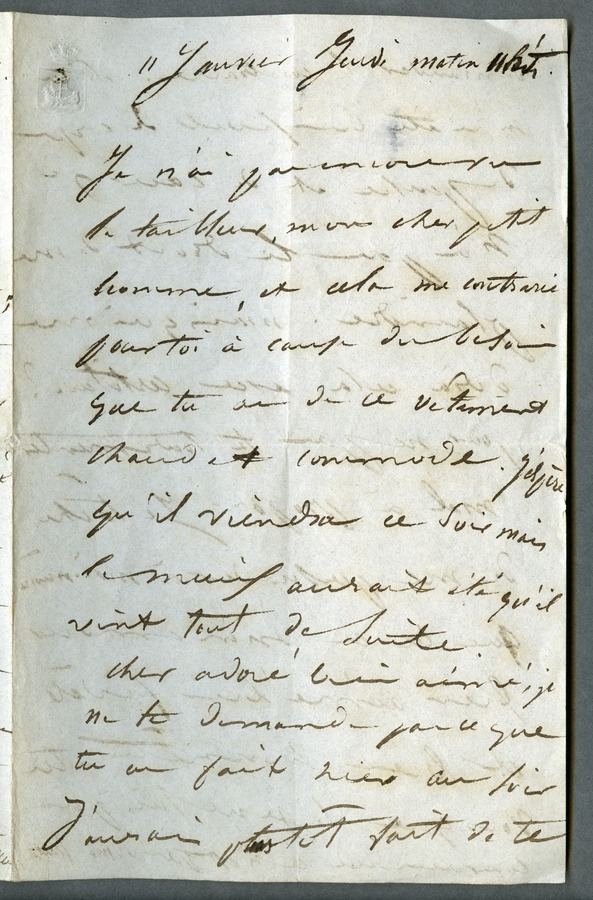 11 Janvier Jeudi matin 11h ½.
Je n'ai pas encore vu
le tailleur, mon cher petit
homme, et cela me contrarie
pour toi à cause du besoin
que tu as de ce vêtement
chaud et commode. J'espère
qu'il viendra ce soir mais
le mieux aurait été qu'il
vint tout de suite.
cher adoré, bien aimé, je
ne te demande pas ce que
tu as fait hier au soir
J'aurai plustôt fait de te